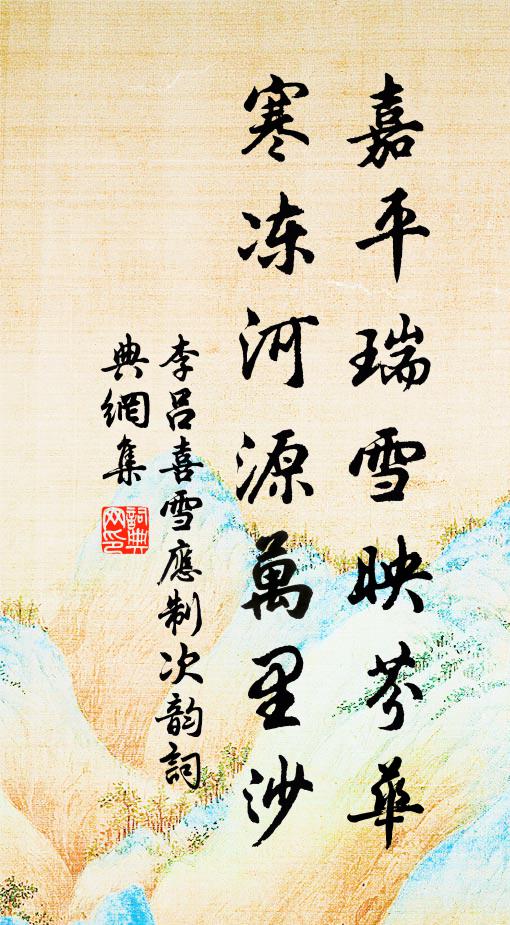 嘉平瑞雪映芬華
寒冻河源萬里沙
李呂喜雪應制次韵詞
典網集
詞典
网印